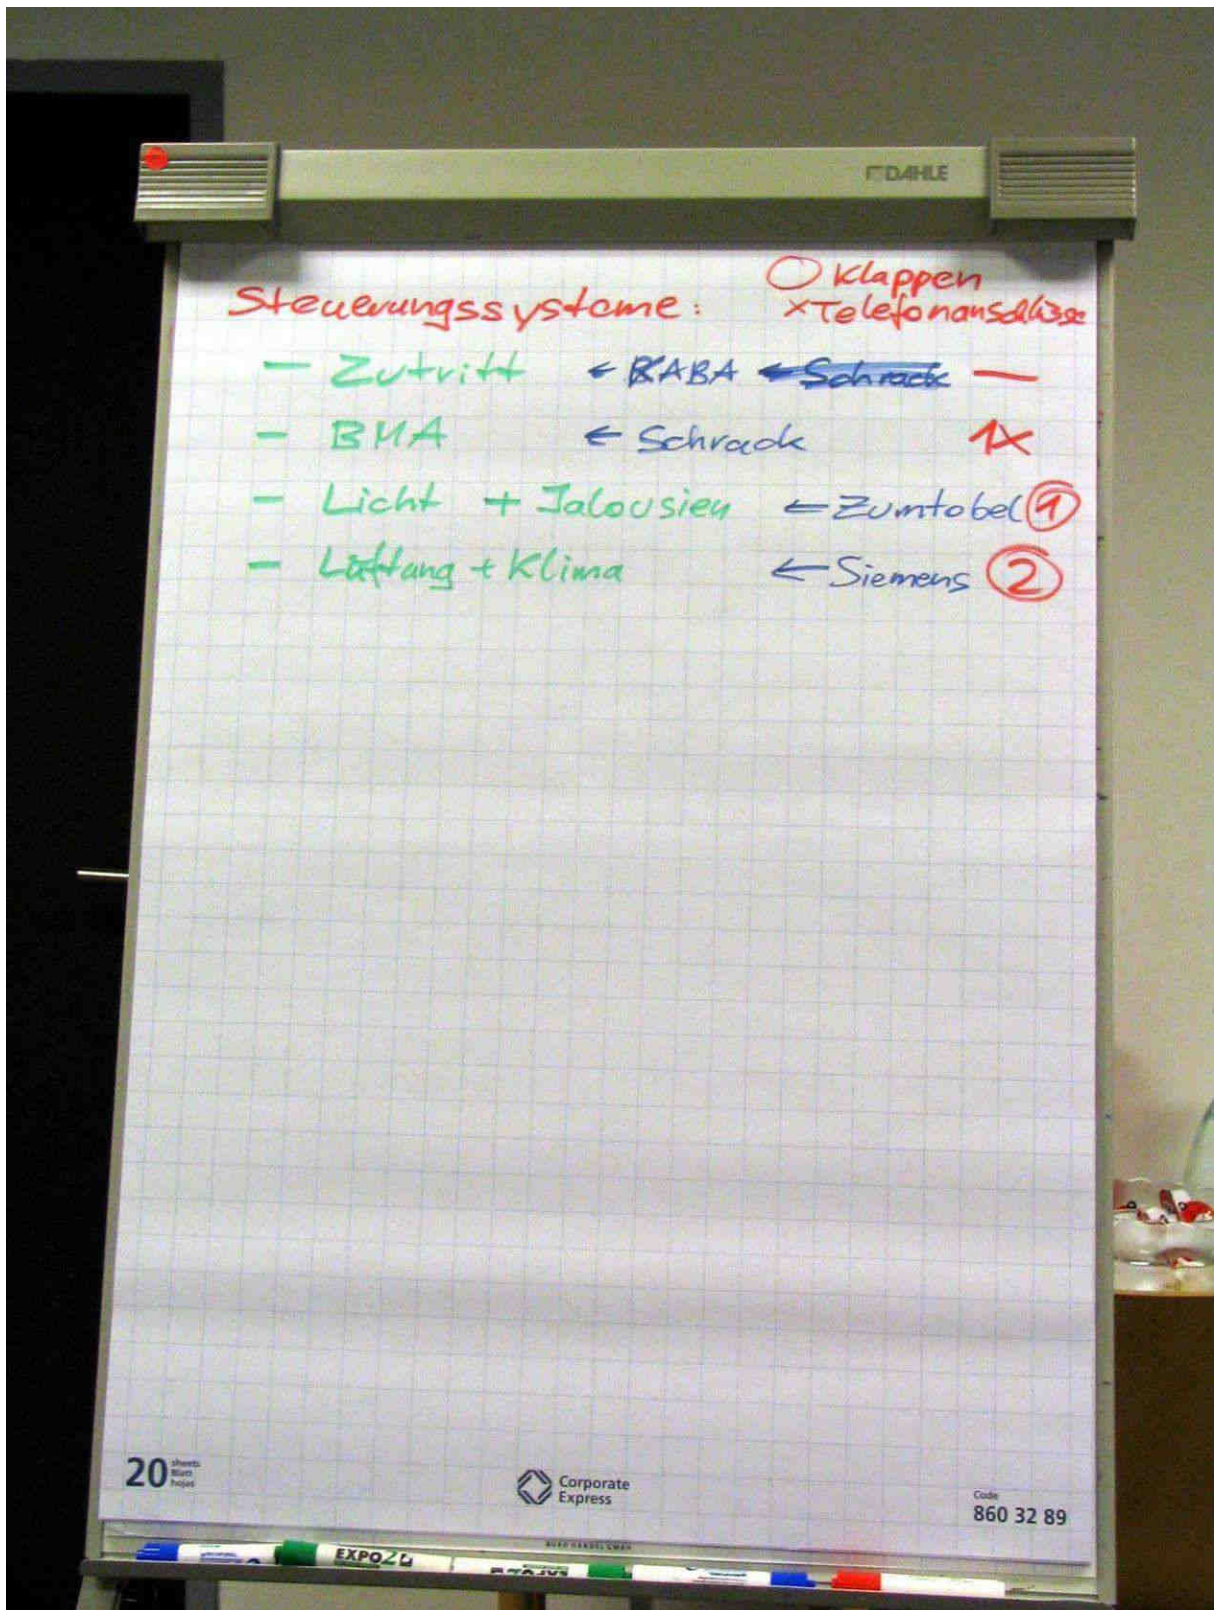 DAHLE
○ Klappen
Steuerungssysteme: × Telefonanschlüsse
— Zutritt ← KABA ← Schrack —
— BMA ← Schrack 1X
— Licht + Jalousien ← Zumtobel 1
— Lüftung + Klima ← Siemens 2
20 sheets
Blatt
hojas
Corporate
Express
Code
860 32 89
EXPO2